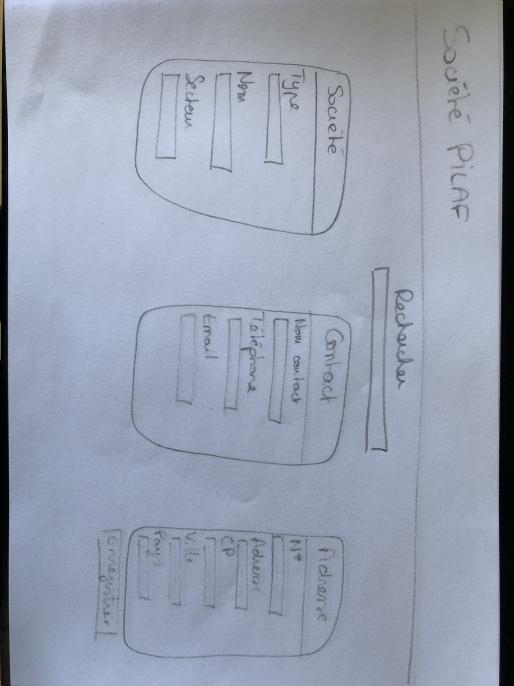 Société PILAF
Rechercher
Société
Type
Nom
Secteur
Contact
Nom contact
Téléphone
Email
Adresse
N°
Adresse
CP
Ville
Pays
Enregistrer